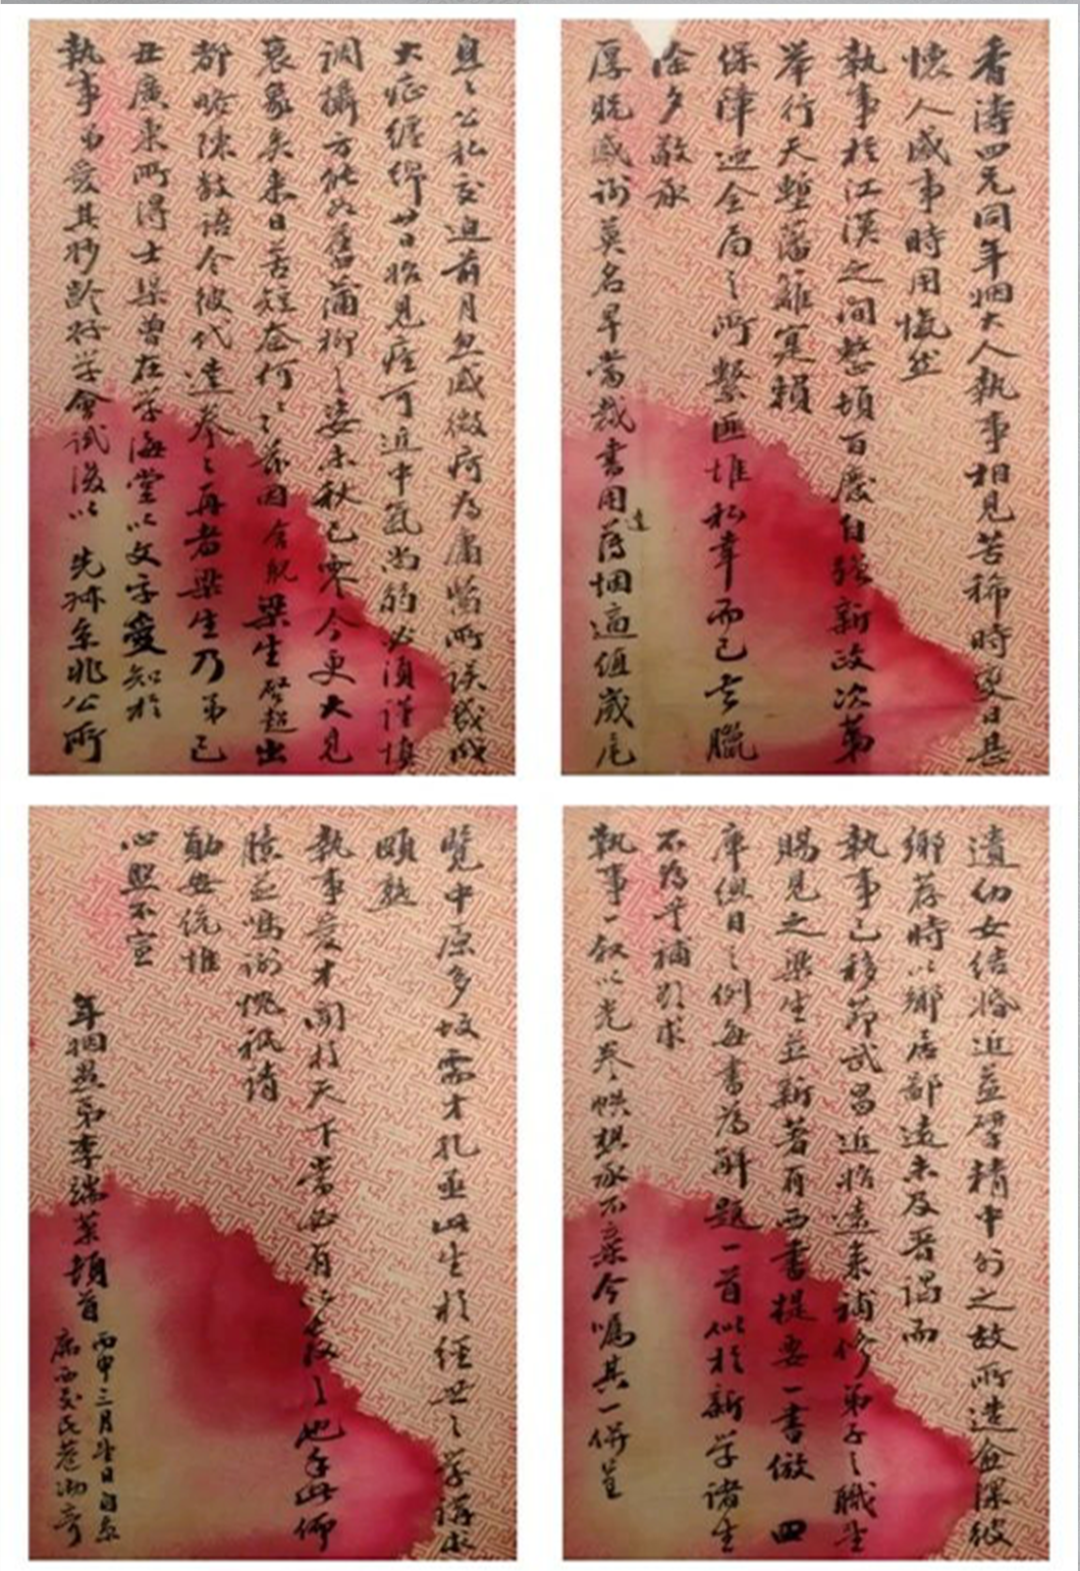 香濤四兄同年姻大人執事相見苦稀時變日甚
懷人感事時用慨然
執事於江漢之間整頓百廢自強新政次第
舉行天塹藩籬寔賴
保障迺全局之所繫匪惟私幸而已去臘
除夕敬承
厚貺感謝莫名早當裁書用達適值歲尾
公私交迫前月忽感微疴為庸醫所誤幾成
大症纏綿廿日始見痊可近中氣尚弱必須謹慎
調攝方能如舊蒲柳之姿未秋已零今更大見
衰象矣來日苦短奈何奈何茲因舍親梁生啓超出
都略陳數語令彼代達拳拳再者梁生乃弟己
丑廣東所得士渠曾在學海堂以文字受知於
執事弟愛其妙齡好學會試後以先妹京兆公所
遺幼女結婚近益肆精中外之故所造愈深彼
鄉荐時以鄉居鄙遠未及晉謁而
執事已移節武昌近始遠來補修弟子之職望
賜見之梁生並新著有西書提要一書倣四
庫總目之例每書為解題一首似於新學諸生
不為無補擬求
執事一叙以光卷帙想承不棄今囑其一併呈
覽中原多故需才孔亟此生於經世之學講求
頗熟
執事愛才聞於天下當必有以教之也手此仰
臆並鳴謝悃祇請
勛安統惟
心照不宣
年姻愚弟李端棻頓首
丙申三月